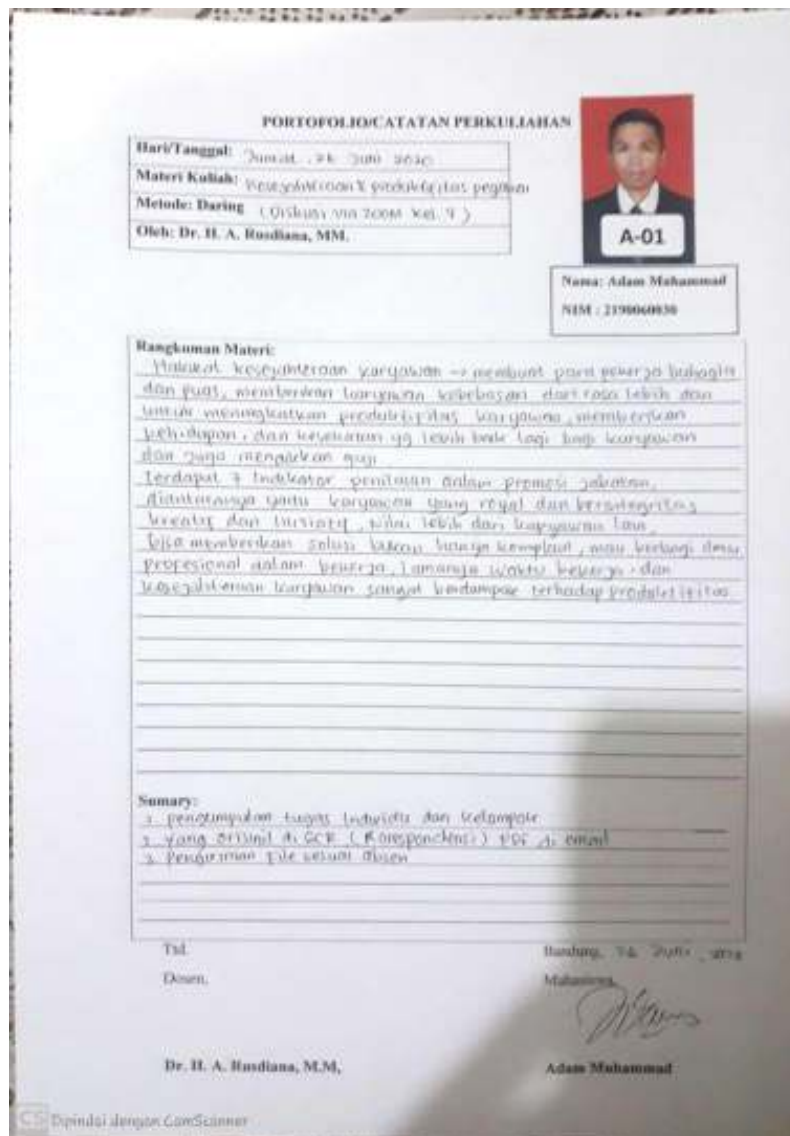 PORTOFOLIO/CATATAN PERKULIAHAN
Hari/Tanggal: Jum'at, 26 Juni 2020
Materi Kuliah: Kesejahteraan & produktifitas pegawai
Metode: Daring (Diskusi via ZOOM Kel. 9)
Oleh: Dr. H. A. Rusdiana, MM.
A-01
Nama: Adam Muhammad
NIM : 2190060030
Rangkuman Materi:
Hakikat kesejahteraan karyawan → membuat para pekerja bahagia
dan puas, memberikan karyawan kebebasan dari rasa lebih dan
untuk meningkatkan produktifitas karyawan, memberikan
kehidupan, dan kesehatan yg lebih baik lagi bagi karyawan
dan juga menaikkan gaji
terdapat 7 Indikator penilaian dalam promosi jabatan,
diantaranya yaitu karyawan yang royal dan berintegritas
kreatif dan Inisiatif, nilai lebih dari karyawan lain,
bisa memberikan solusi bukan hanya komplain, mau berbagi ilmu,
profesional dalam bekerja, lamanya waktu bekerja, dan
kesejahteraan karyawan sangat berdampak terhadap produktifitas
Sumary:
1. pengumpulan tugas Individu dan kelompok
2. yang orisinil di GCR (Korespondensi) PDF di email
3. Pengiriman file sesuai absen
Ttd.
Bandung, 26 Juni, 2020
Dosen,
Mahasiswa,
Dr. H. A. Rusdiana, M.M,
Adam Muhammad
CS Dipindai dengan CamScanner